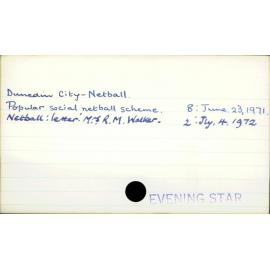 Dunedin City-Netball.
Popular social netball scheme. 8: June 23, 1971.
Netball: letter M. & R. M. Walker. 2: Jly. 4. 1972
EVENING STAR